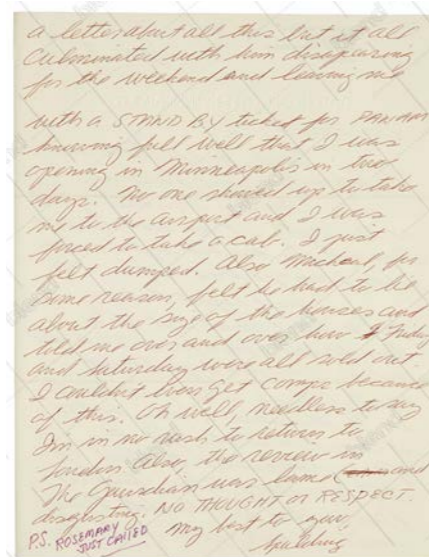 a letter about all this but it all
culminated with him disapearing
for the weekend and leaving me
with a STAND BY ticket for PAN AM
knowing full well that I was
opening in Minneapolis in two
days. No one showed up to take
me to the airport and I was
forced to take a cab. I just
felt dumped. Also Micheal, for
some reason, felt he had to lie
about the size of the houses and
told me over and over how Friday
and Saturday were all sold out
I couldn't even get comps because
of this. Oh well, needless to say
Im in no rush to return to
London. Also, the review in
The Guardian was lame and
disgusting. NO THOUGHT or RESPECT.
My best to you,
Spalding
P.S. ROSEMARY
JUST CALLED